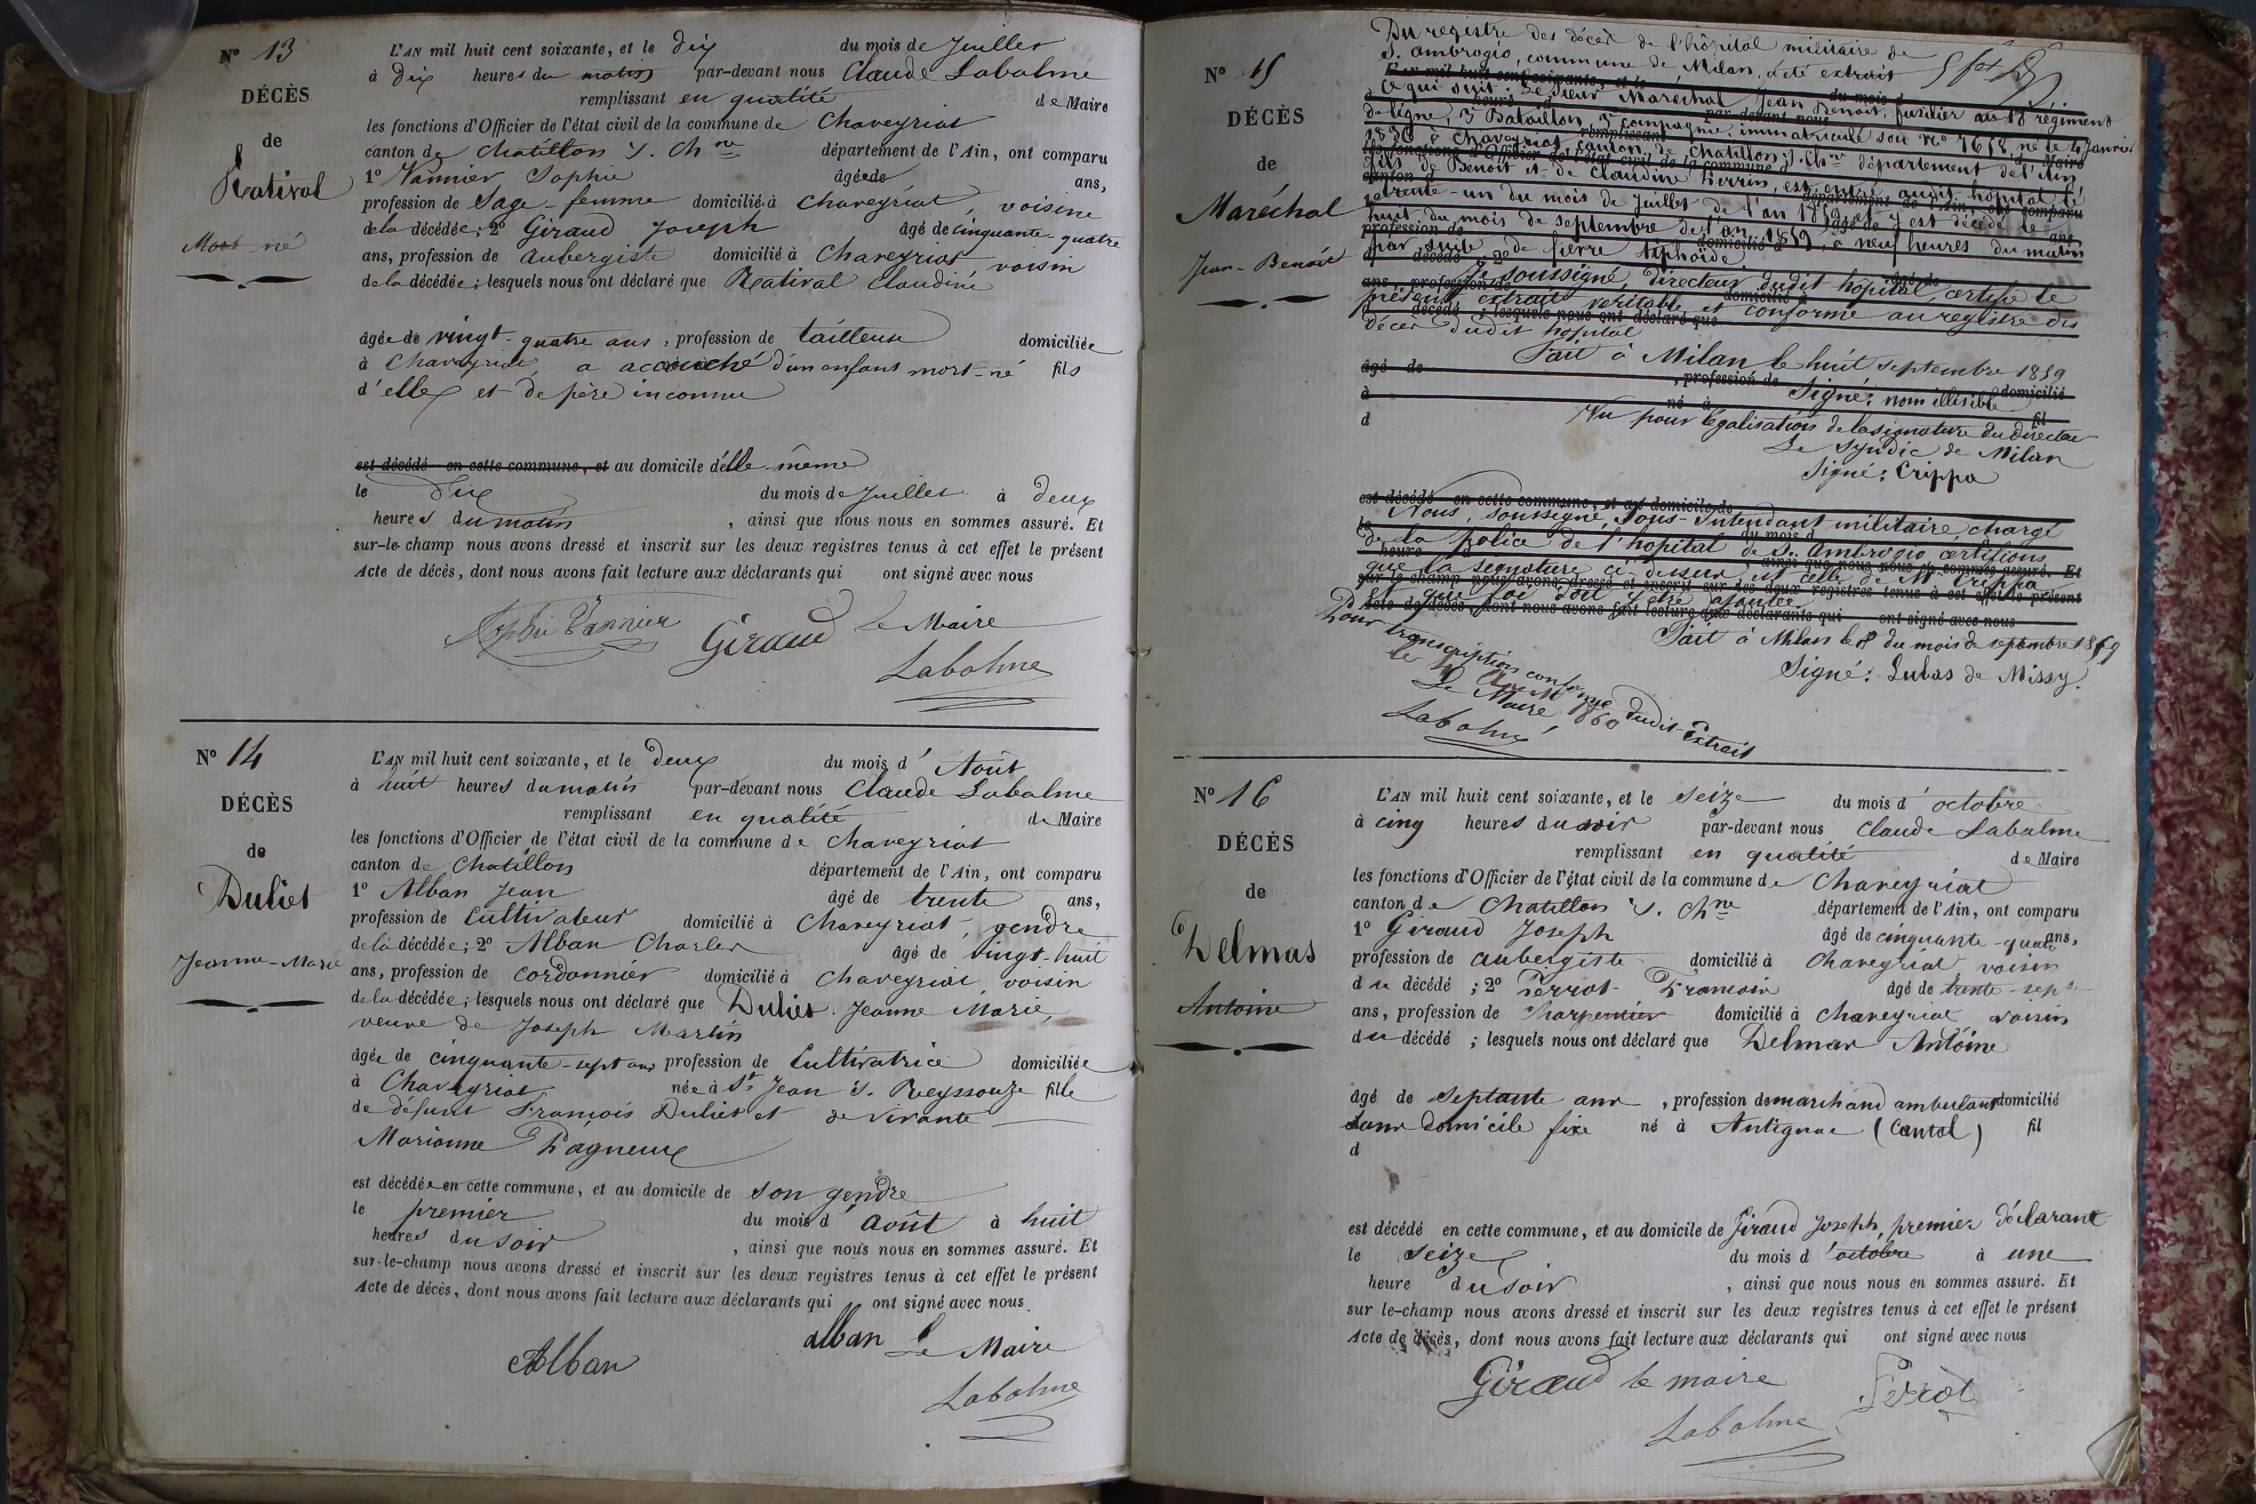 N° 13
DÉCÈS
de
Ratival
Mort né
L'AN mil huit cent soixante, et le dix du mois de Juillet
à dix heures du matin par-devant nous Claude Labalme
remplissant en qualité de Maire
les fonctions d'Officier de l'état civil de la commune de Chaveyriat
canton de Chatillon s. Chne département de l'Ain, ont comparu
1° Vannier Sophie âgée de ans,
profession de Sage-femme domicilié à Chaveyriat, voisine
de la décédée; 2° Giraud Joseph âgé de cinquante-quatre
ans, profession de aubergiste domicilié à Chaveyriat voisin
de la décédée; lesquels nous ont déclaré que Ratival Claudine
âgée de vingt-quatre ans, profession de tailleuse domiciliée
à Chaveyriat, a accouché d'un enfant mort-né fils
d'elle et de père inconnu
est décédé en cette commune, et au domicile d'elle-même
le dix du mois de Juillet à deux
heures du matin, ainsi que nous nous en sommes assuré. Et
sur-le-champ nous avons dressé et inscrit sur les deux registres tenus à cet effet le présent
Acte de décès, dont nous avons fait lecture aux déclarants qui ont signé avec nous
Sophie Vannier Giraud Le Maire
Labalme
N° 14
DÉCÈS
de
Duliet
Jeanne-Marie
L'AN mil huit cent soixante, et le deux du mois d'Août
à huit heures du matin par-devant nous Claude Labalme
remplissant en qualité de Maire
les fonctions d'Officier de l'état civil de la commune de Chaveyriat
canton de Chatillon département de l'Ain, ont comparu
1° Alban Jean âgé de trente ans,
profession de Cultivateur domicilié à Chaveyriat, gendre
de la décédée; 2° Alban Charles âgé de vingt-huit
ans, profession de cordonnier domicilié à Chaveyriat, voisin
de la décédée; lesquels nous ont déclaré que Duliet Jeanne Marie,
veuve de Joseph Martin
âgée de cinquante-sept ans profession de Cultivatrice domiciliée
à Chaveyriat née à St Jean s. Reyssouze fille
de défunt François Duliet et de vivante
Marianne Pagneux
est décédée en cette commune, et au domicile de son gendre
le premier du mois d'août à huit
heures du soir, ainsi que nous nous en sommes assuré. Et
sur-le-champ nous avons dressé et inscrit sur les deux registres tenus à cet effet le présent
Acte de décès, dont nous avons fait lecture aux déclarants qui ont signé avec nous.
Alban alban Le Maire
Labalme
N° 15
DÉCÈS
de
Maréchal
Jean-Benoit
Du registre des décès de l'hôpital militaire de
S. Ambrogio, commune de Milan, a été extrait
ce qui suit: Le Sieur Maréchal Jean Benoit, fusilier au régiment
de ligne, 3 Bataillon, 3e compagnie, immatriculé sou No 7618, né le 4 Janvier
1836 à Chaveyriat canton de Chatillon s. Chne département de l'Ain
fils de Benoit et de Claudine Perrin, est entré audit hôpital le
trente-un du mois de Juillet de l'an 1859, et y est décédé le
huit du mois de septembre de l'an 1859, à neuf heures du matin
par suite de fièvre typhoïde.
Je soussigné, directeur dudit hôpital, certifie le
présent extrait véritable et conforme au registre des
décès dudit hopital
Fait à Milan le huit septembre 1859
Signé: nom illisible
Vu pour légalisation de la signature du Directeur
Le Syndic de Milan
Signé: Crippa
Nous, soussigné, Sous-Intendant militaire, chargé
de la police de l'hopital de S. Ambrogio certifions
que la signature ci-dessus est celle de Mr Crippa
et que foi doit y être ajoutée.
Fait à Milan le 8 du mois de septembre 1859
Signé: Lubas de Missy.
Pour transcription conforme dudit Extrait
le 1860
Le Maire
Labalme
N° 16
DÉCÈS
de
Delmas
Antoine
L'AN mil huit cent soixante, et le seize du mois d'octobre
à cinq heures du soir par-devant nous Claude Labalme
remplissant en qualité de Maire
les fonctions d'Officier de l'état civil de la commune de Chaveyriat
canton de Chatillon s. Chne département de l'Ain, ont comparu
1° Giraud Joseph âgé de cinquante-quatre ans,
profession de aubergiste domicilié à Chaveyriat, voisin
du décédé; 2° Perrot François âgé de trente-sept
ans, profession de Charpentier domicilié à Chaveyriat voisin
du décédé; lesquels nous ont déclaré que Delmas Antoine
âgé de septante ans, profession de marchand ambulant domicilié
sans domicile fixe né à Antignac (Cantal) fil
d
est décédé en cette commune, et au domicile de Giraud Joseph, premier déclarant
le seize du mois d'octobre à une
heure du soir, ainsi que nous nous en sommes assuré. Et
sur le-champ nous avons dressé et inscrit sur les deux registres tenus à cet effet le présent
Acte de décès, dont nous avons fait lecture aux déclarants qui ont signé avec nous
Giraud le maire Perrot
Labalme